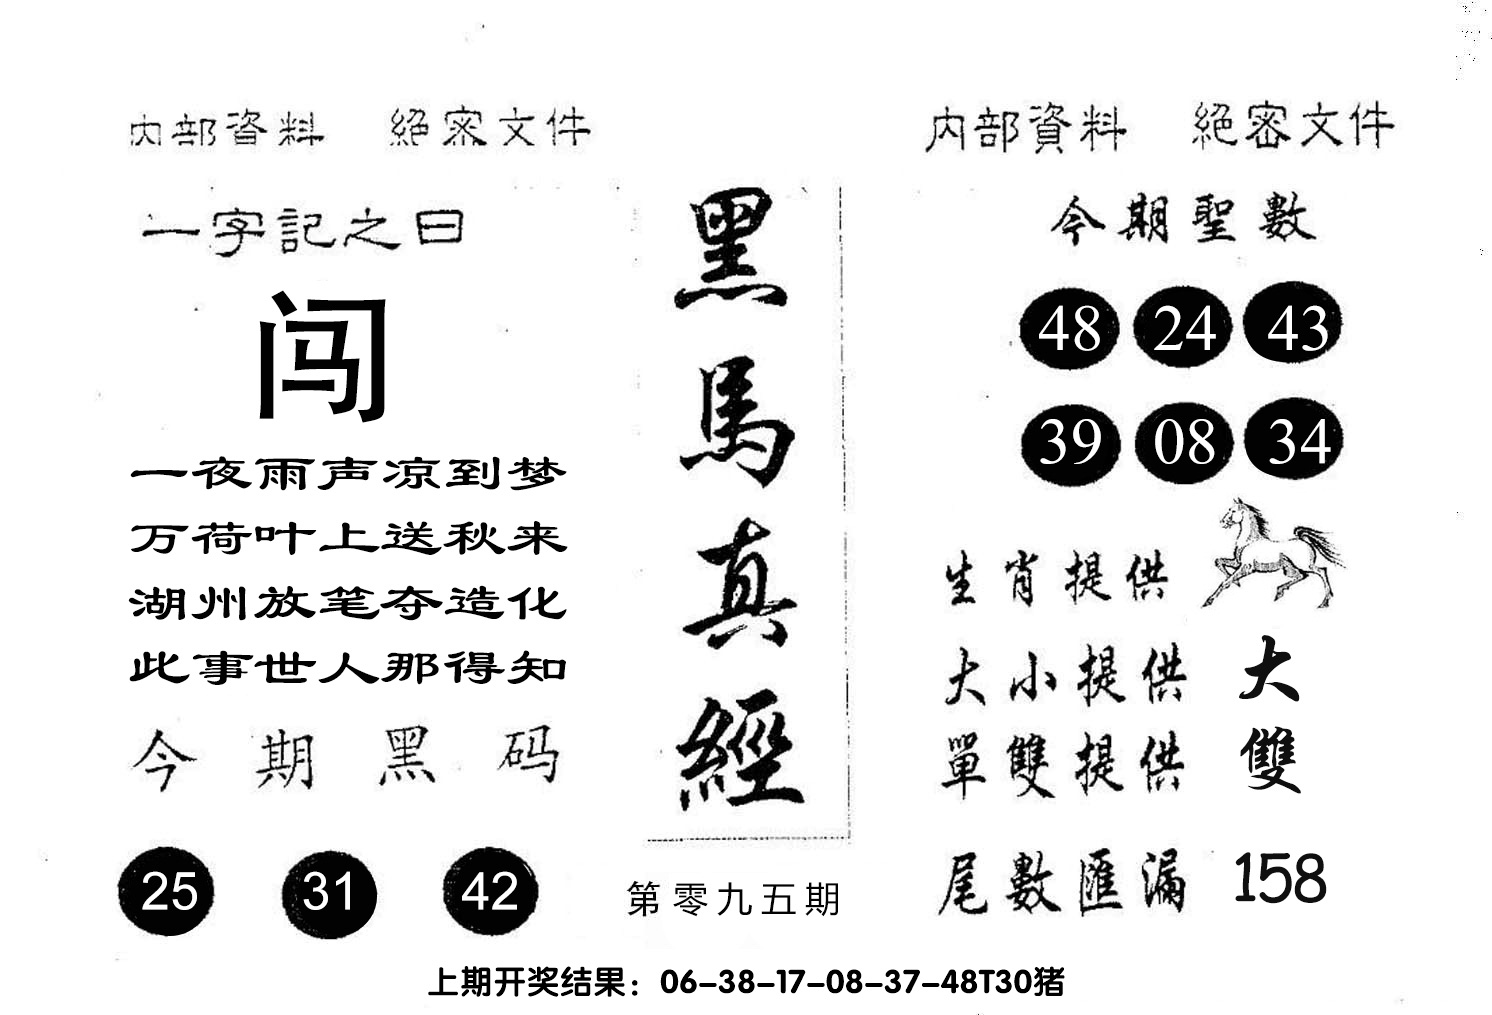 内部資料 絕密文件
一字記之曰
闯
一夜雨声凉到梦
万荷叶上送秋来
湖州放笔夺造化
此事世人那得知
今期黑码
25 31 42
黑馬真經
第零九五期
内部資料 絕密文件
今期聖數
48 24 43
39 08 34
生肖提供
大小提供 大
單雙提供 雙
尾數匯漏 158
上期开奖结果：06-38-17-08-37-48T30猪